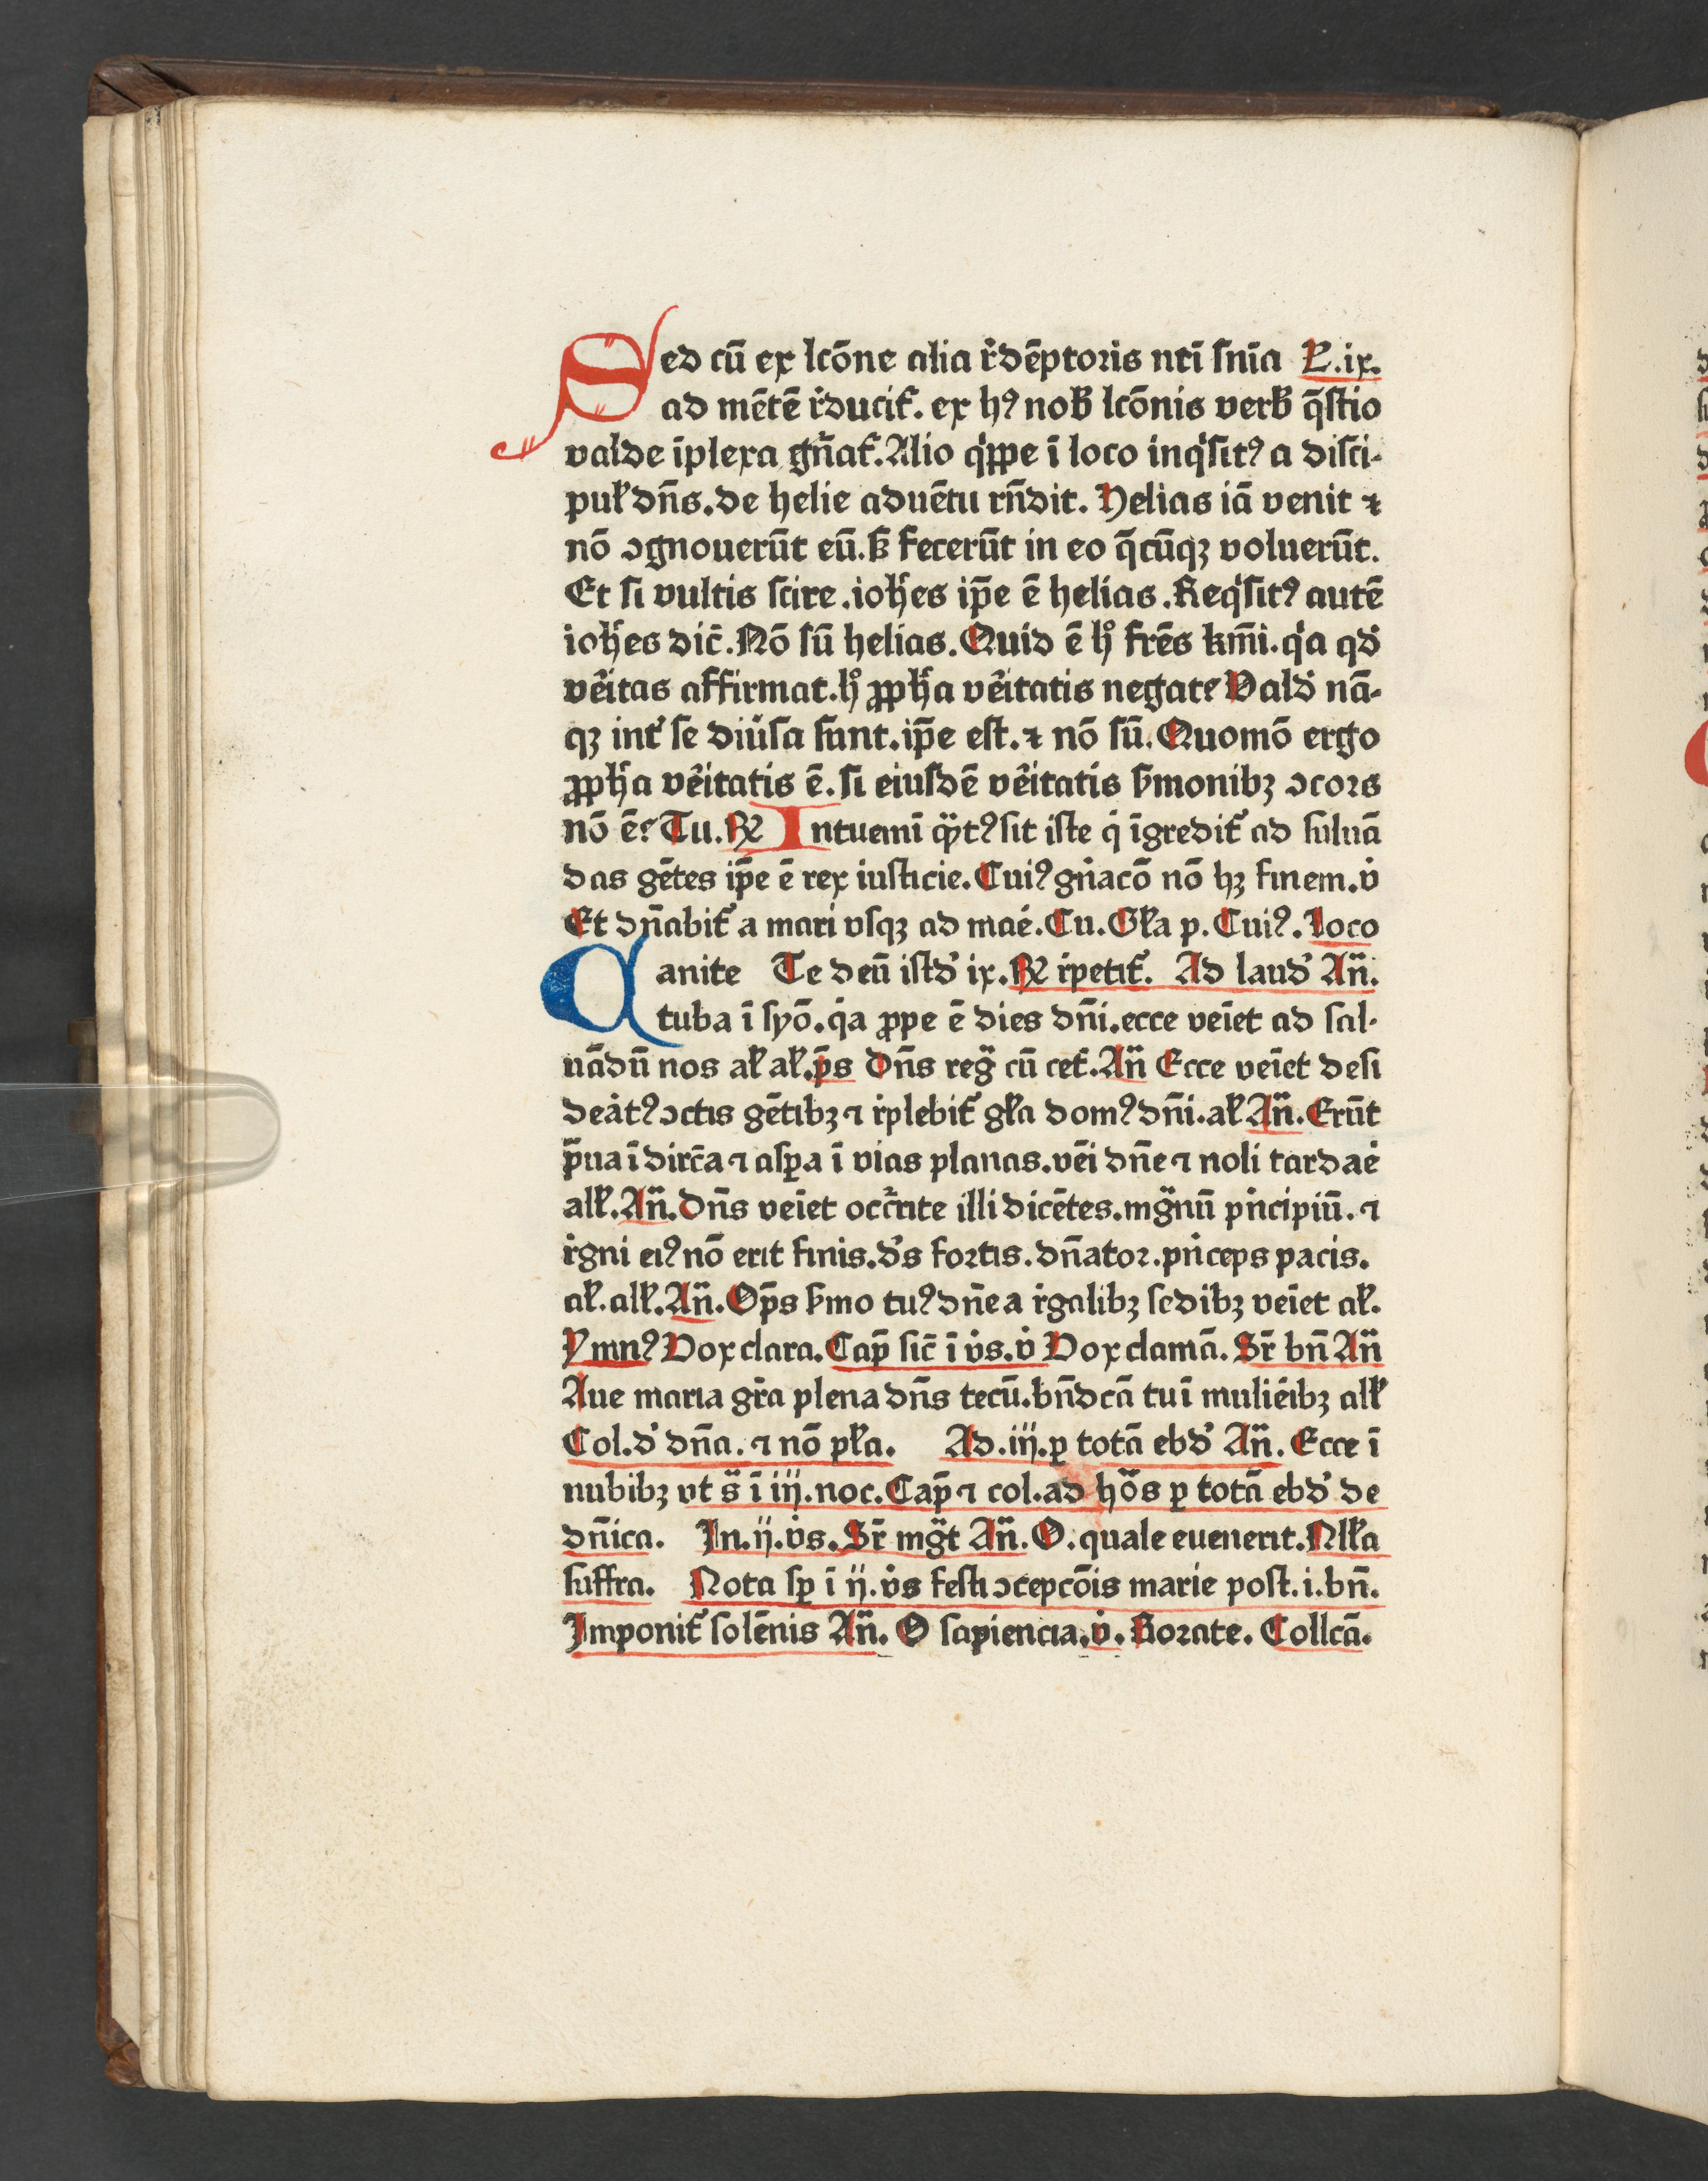 Sed cū ex lcōne alia r̄dēptoris nr̄i sn̄ia L.ix.
ad mētē r̄ducit̉. ex hꝰ nob̄ lcōnis verb̄ q̄stio
valde īplexa gn̄at̉. Alio qͥppe ī loco inqͥsitꝰ a disci-
pul̉ dn̄s. de helie aduētu rn̄dit. Helias iā venit ⁊
nō ꝯgnouerūt eū. ẜ fecerūt in eo q̄cūqꝫ voluerūt.
Et si vultis scire. ioħes ip̄e ē helias. Reqͥsitꝰ autē
ioħes dic̄. Nō sū helias. Quid ē hͦ frēs km̄i. qͥa qd̉
vēitas affirmat. hͦ ꝓpħa vēitatis negat? Vald̉ nā-
qꝫ int̉ se diūsa sunt. ip̄e est. ⁊ nō sū. Quomō ergo
ꝓpħa vēitatis ē. si eiusdē vēitatis ẜmonibꝫ ꝯcors
nō ē? Tu. ℟ Intuemī qͣtꝰ sit iste qͥ īgredit̉ ad saluā
das gētes ip̄e ē rex iusticie. Cuiꝰ gn̄acō nō hꝫ finem. v̇
Et dn̄abit̉ a mari vsqꝫ ad mae̍. Cu. Gl̉a p. Cuiꝰ. Loco
Canite Te deū istd̉ ix. ℟ r̄petit̉. Ad laud̉ An̄.
tuba ī syō. qͥa ꝓpe ē dies dn̄i. ecce veīet ad sal-
uādū nos al̉ al̉. p̄s Dn̄s reg̈ cū cet̉. An̄ Ecce veīet desi
deāt̉ꝰ ꝯctis gētibꝫ ⁊ r̄plebit̉ gl̉a domꝰ dn̄i. al̉ An̄. Erūt
p̄ua ī dirc̄a ⁊ asꝑa ī vias planas. vēi dn̄e ⁊ noli tardae̍
all̉. An̄. Dn̄s veīet occr̄ite illi dicētes. mg̈nū pn̍cipiū. ⁊
r̄gni eiꝰ nō erit finis. d̉s fortis. dn̄ator. pn̍ceps pacis.
al̉. all̉. An̄. Op̄s ẜmo tuꝰ dn̄e a r̄galibꝫ sedibꝫ veīet al̉.
Ymnꝰ Vox clara. Cap̄ sic̄ ī v̇s. v̇ Vox clamā. Sr̄ bn̄ An̄
Aue maria gr̄a plena dn̄s tecū. bn̄dcā tu ī mulie̍ibꝫ all̉
Col. d̉ dn̄a. ⁊ nō pl̉a. Ad. iij. ꝑ totā ebd̉ An̄. Ecce ī
nubibꝫ vt s̈ ī iij. noc. Cap̄ ⁊ col. ad hōs ꝑ totā ebd̉ de
dn̄ica. In. ij. v̇s. Sr̄ mg̈t An̄. O. quale euenerit. Nll̉a
suffra. Nota sꝑ ī ij. v̇s festi ꝯcepcōis marie post. i. bn̄.
Imponit̉ solēnis An̄. O sapiencia. v̇. Rorate. Collcā.